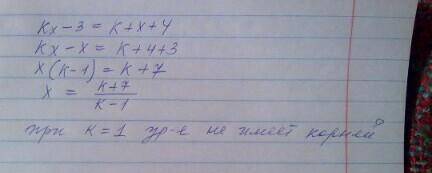 Kx - 3 = K + x + 4
Kx - x = K + 4 + 3
x(K - 1) = K + 7
x = \frac{K+7}{K-1}
при K = 1 ур-е не имеет корней